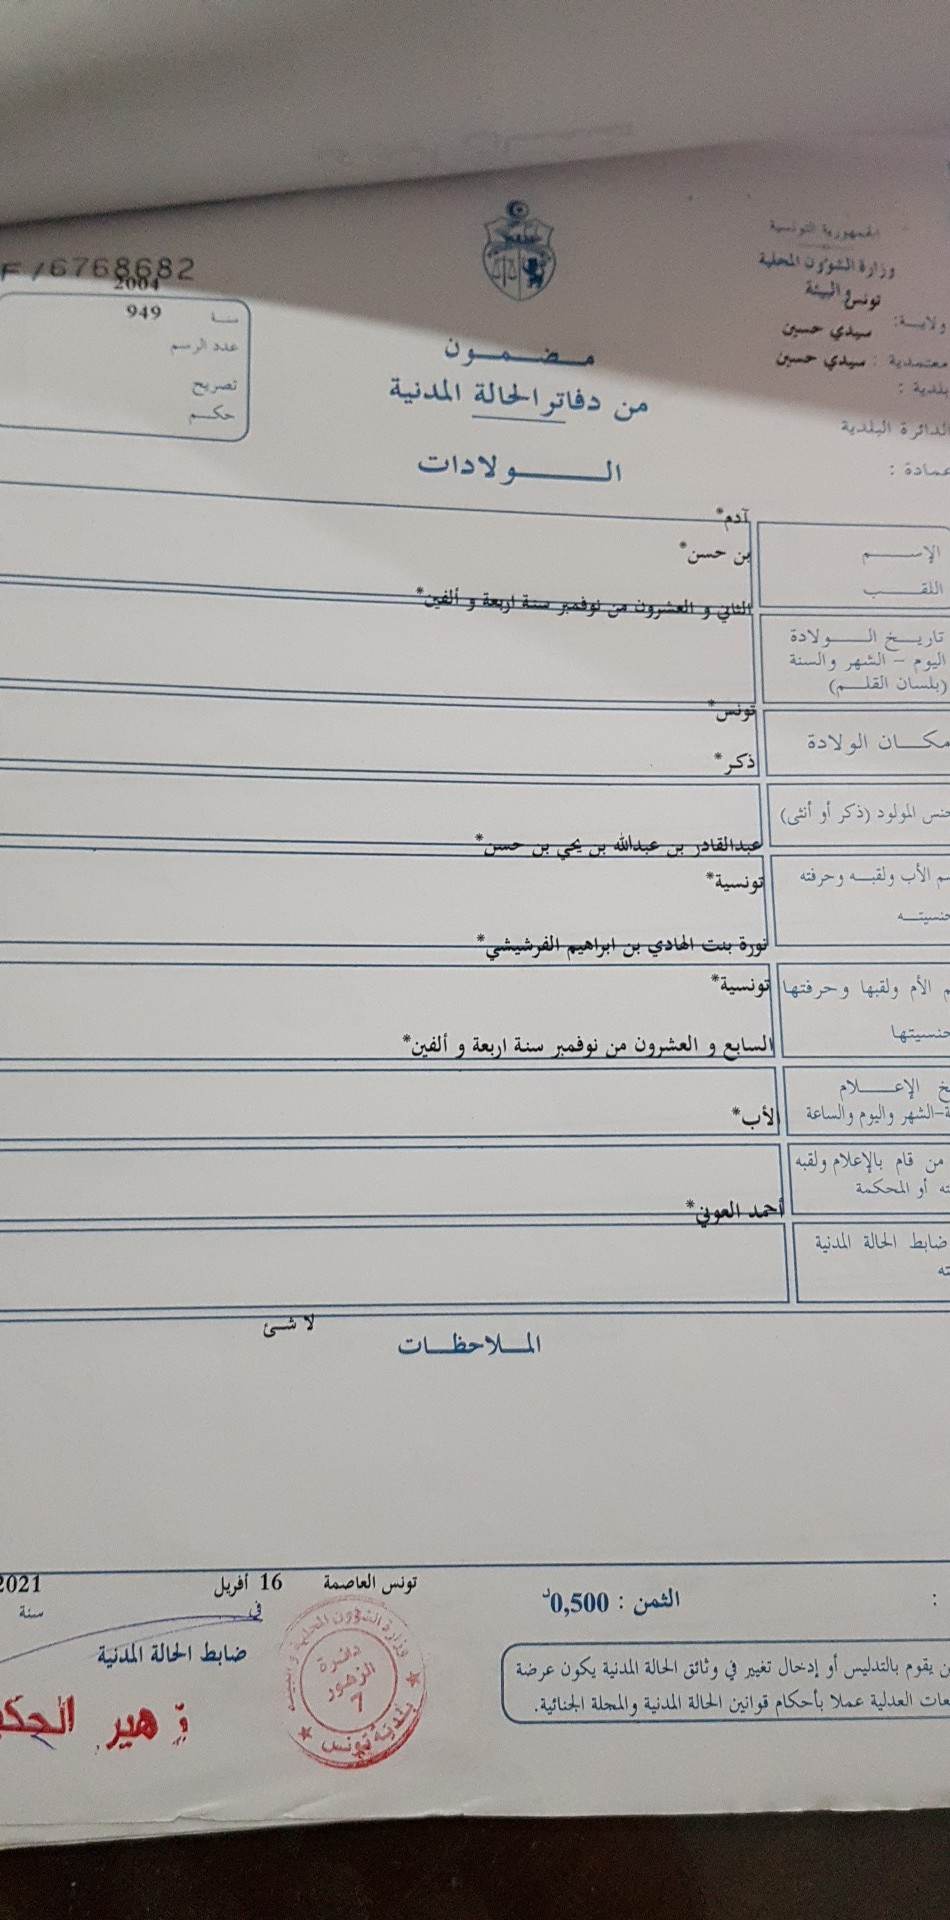 الجمهورية التونسية
وزارة الشؤون المحلية
والبيئة
تونس
ولاية:
سيدي حسين
معتمدية : سيدي حسين
بلدية :
الدائرة البلدية
عمادة :
F/6768682
2004
سنة
949
عدد الرسم
تصريح
حكم
مضمون
من دفاتر الحالة المدنية
الولادات
الإسم
آدم*
اللقب
بن حسن*
تاريخ الولادة
اليوم - الشهر والسنة
(بلسان القلم)
الثاني و العشرون من نوفمبر سنة اربعة و ألفين*
مكان الولادة
تونس*
جنس المولود (ذكر أو أنثى)
ذكر*
الأب ولقبه وحرفته
عبدالقادر بن عبدالله بن يحي بن حسن*
تونسية*
الأم ولقبها وحرفتها
نورة بنت الهادي بن ابراهيم الفرشيشي*
تونسية*
الإعلام
الشهر واليوم والساعة
السابع و العشرون من نوفمبر سنة اربعة و ألفين*
من قام بالإعلام ولقبه
أو المحكمة
الأب*
ضابط الحالة المدنية
أحمد العوني*
لا شئ
الملاحظات
تونس العاصمة 16 أفريل 2021
في
سنة
الثمن : 0,500د
ضابط الحالة المدنية
يقوم بالتدليس أو إدخال تغيير في وثائق الحالة المدنية يكون عرضة
العدلية عملا بأحكام قوانين الحالة المدنية والمجلة الجنائية.
وزارة الشؤون المحلية و البيئة
دائرة
الزهور
7
بلدية تونس
زهير